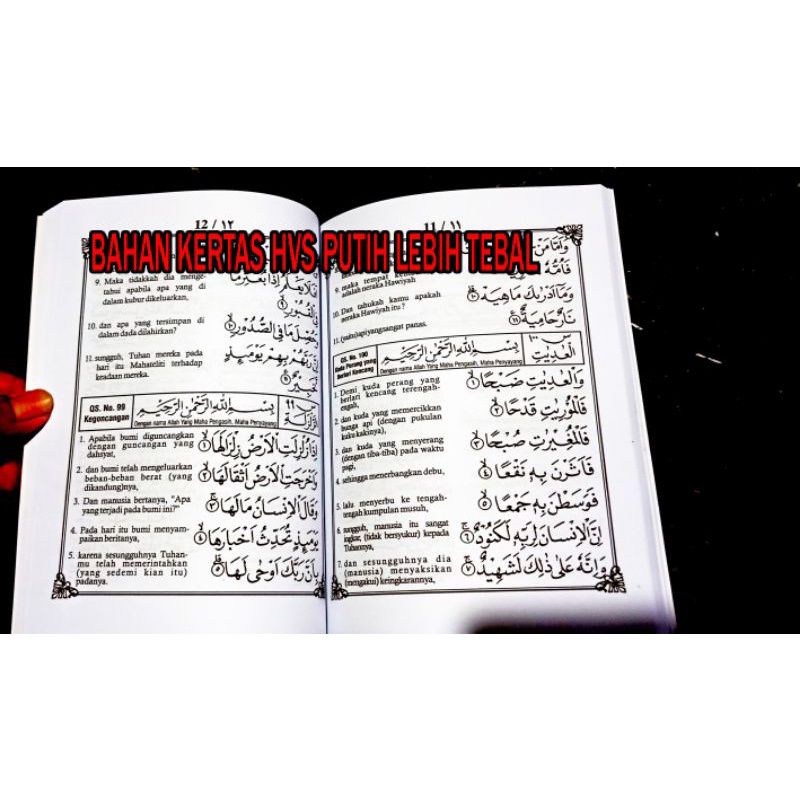 BAHAN KERTAS HVS PUTIH LEBIH TEBAL
11 / ١١
وَاَمَّا مَنْ
فَاُمُّهُ
9. maka tempat
adalah neraka Hawiyah
وَمَآ اَدْرٰىكَ مَاهِيَهْ ۗ ١٠
10. Dan tahukah kamu apakah
neraka Hawiyah itu ?
نَارٌ حَامِيَةٌ ۗ ١١
11. (yaitu)apiyangsangat panas.
QS. No. 100
Kuda Perang yang
Berlari Kencang
بِسْمِ اللّٰهِ الرَّحْمٰنِ الرَّحِيْمِ
Dengan nama Allah Yang Maha Pengasih, Maha Penyayang
١٠٠
الْعٰدِيٰت
وَالْعٰدِيٰتِ ضَبْحًا ١
1. Demi kuda perang yang
berlari kencang terengah-
engah,
فَالْمُوْرِيٰتِ قَدْحًا ٢
2. dan kuda yang memercikkan
bunga api (dengan pukulan
kuku kakinya),
فَالْمُغِيْرٰتِ صُبْحًا ٣
3. dan kuda yang menyerang
(dengan tiba-tiba) pada waktu
pagi,
فَاَثَرْنَ بِهٖ نَقْعًا ٤
4. sehingga menerbangkan debu,
فَوَسَطْنَ بِهٖ جَمْعًا ٥
5. lalu menyerbu ke tengah-
tengah kumpulan musuh,
اِنَّ الْاِنْسَانَ لِرَبِّهٖ لَكَنُوْدٌ ٦
6. sungguh, manusia itu sangat
ingkar, (tidak bersyukur) kepada
Tuhannya,
وَاِنَّهٗ عَلٰى ذٰلِكَ لَشَهِيْدٌ ٧
7. dan sesungguhnya dia
(manusia) menyaksikan
(mengakui) keingkarannya,
12 / ١٢
اَفَلَا يَعْلَمُ اِذَا بُعْثِرَ مَا
فِى الْقُبُوْرِ ٩
9. Maka tidakkah dia menge-
tahui apabila apa yang di
dalam kubur dikeluarkan,
وَحُصِّلَ مَا فِى الصُّدُوْرِ ١٠
10. dan apa yang tersimpan di
dalam dada dilahirkan?
اِنَّ رَبَّهُمْ بِهِمْ يَوْمَىِٕذٍ
لَّخَبِيْرٌ ١١
11. sungguh, Tuhan mereka pada
hari itu Mahateliti terhadap
keadaan mereka.
QS. No. 99
Kegoncangan
بِسْمِ اللّٰهِ الرَّحْمٰنِ الرَّحِيْمِ
Dengan nama Allah Yang Maha Pengasih, Maha Penyayang
٩٩
اِذَا زُلْزِلَتِ الْاَرْضُ زِلْزَالَهَا ١
1. Apabila bumi diguncangkan
dengan guncangan yang
dahsyat,
وَاَخْرَجَتِ الْاَرْضُ اَثْقَالَهَا ٢
2. dan bumi telah mengeluarkan
beban-beban berat (yang
dikandung)nya,
وَقَالَ الْاِنْسَانُ مَا لَهَا ٣
3. Dan manusia bertanya, "Apa
yang terjadi pada bumi ini?"
يَوْمَىِٕذٍ تُحَدِّثُ اَخْبَارَهَا ٤
4. Pada hari itu bumi menyam-
paikan beritanya,
بِاَنَّ رَبَّكَ اَوْحٰى لَهَا ٥
5. karena sesungguhnya Tuhan-
mu telah memerintahkan
(yang sedemi kian itu)
padanya.